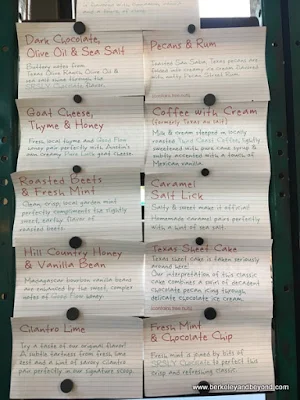 Dark Chocolate,
Olive Oil & Sea Salt
Buttery notes from
Texas Olive Ranch Olive Oil &
sea salt shine through the
SRSLY Chocolate flavor.
Pecans & Rum
Toasted San Saba, Texas pecans are
folded into creamy ice cream
Goat Cheese,
Thyme & Honey
Fresh, local thyme and Good Flow
honey pair perfectly with Austin's
own creamy goat cheese.
Coffee with Cream
(formerly Texas au lait)
Milk & cream steeped in locally
roasted Coffee, lightly
sweetened with pure cane syrup &
subtly accented with a touch of
Mexican vanilla.
Roasted Beets
& Fresh Mint
Clean, crisp, local garden mint
perfectly compliments the slightly
sweet, earthy flavor of
roasted beets.
Caramel
Salt Lick
Salty & sweet make it official!
Homemade caramel pairs perfectly
with a hint of sea salt.
Hill Country Honey
& Vanilla Bean
Madagascar bourbon vanilla beans
are enlivened by the sweet, complex
notes of Good Flow honey.
Texas Sheet Cake
Texas sheet cake is taken seriously
around here!
Our interpretation of this classic
cake combines a swirl of decadent
chocolate pecan icing through
delicate chocolate ice cream.
Cilantro Lime
Try a taste of our original flavor!
A subtle tartness from fresh lime
zest and a hint of savory cilantro
pair perfectly in our signature scoop.
Fresh Mint
& Chocolate Chip
Fresh mint is joined by bits of
SRSLY Chocolate to perfect this
crisp and refreshing classic.
www.berkeleyandbeyond.com